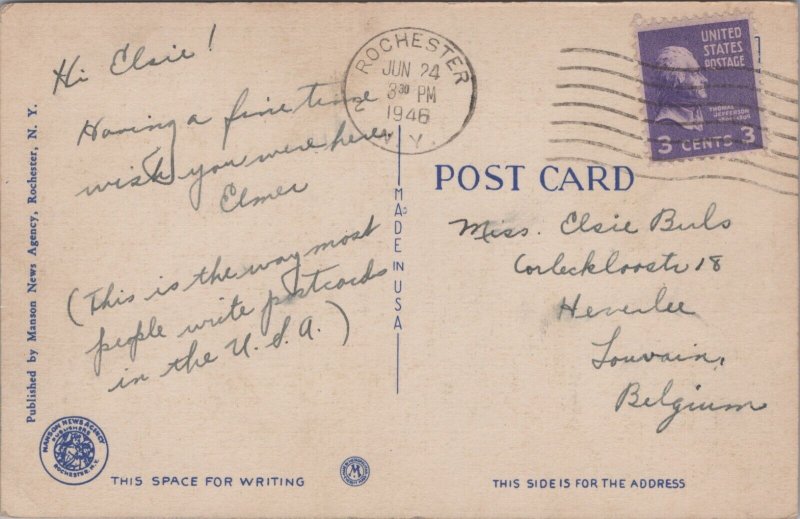 Hi Elsie!
Having a fine time
wish you were here.
Elmer
(This is the way most
people write postcards
in the U.S.A.)
Published by Manson News Agency, Rochester, N. Y.
MANSON NEWS AGENCY
PUBLISHERS
ROCHESTER, N.Y.
THIS SPACE FOR WRITING
ROCHESTER
JUN 24
3 30 PM
1946
N. Y.
MADE IN USA
UNITED
STATES
POSTAGE
THOMAS
JEFFERSON
3 CENTS 3
POST CARD
Miss. Elsie Buls
18
Heverlee
Louvain,
Belgium
THIS SIDE IS FOR THE ADDRESS